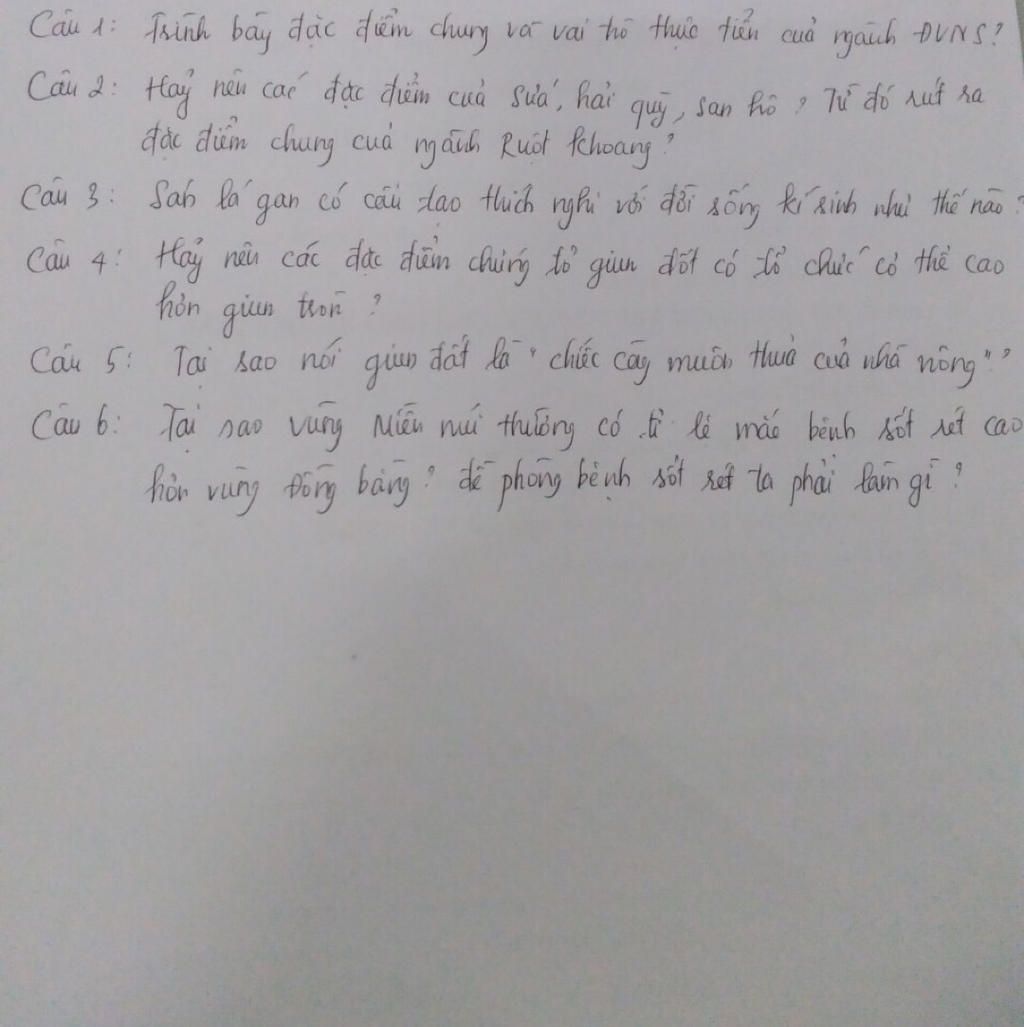 Câu 1: Trình bày đặc điểm chung và vai trò thực tiễn của ngành ĐVNS?
Câu 2: Hãy nêu các đặc điểm của sứa, hải quỳ, san hô? Từ đó rút ra
đặc điểm chung của ngành Ruột khoang?
Câu 3: Sán lá gan có cấu tạo thích nghi với đời sống kí sinh như thế nào?
Câu 4: Hãy nêu các đặc điểm chứng tỏ giun đốt có tổ chức cơ thể cao
hơn giun tròn?
Câu 5: Tại sao nói giun đất là "chiếc cày muôn thuở của nhà nông"?
Câu 6: Tại sao vùng Miền núi thường có tỉ lệ mắc bệnh sốt rét cao
hơn vùng Đồng bằng? để phòng bệnh sốt rét ta phải làm gì?